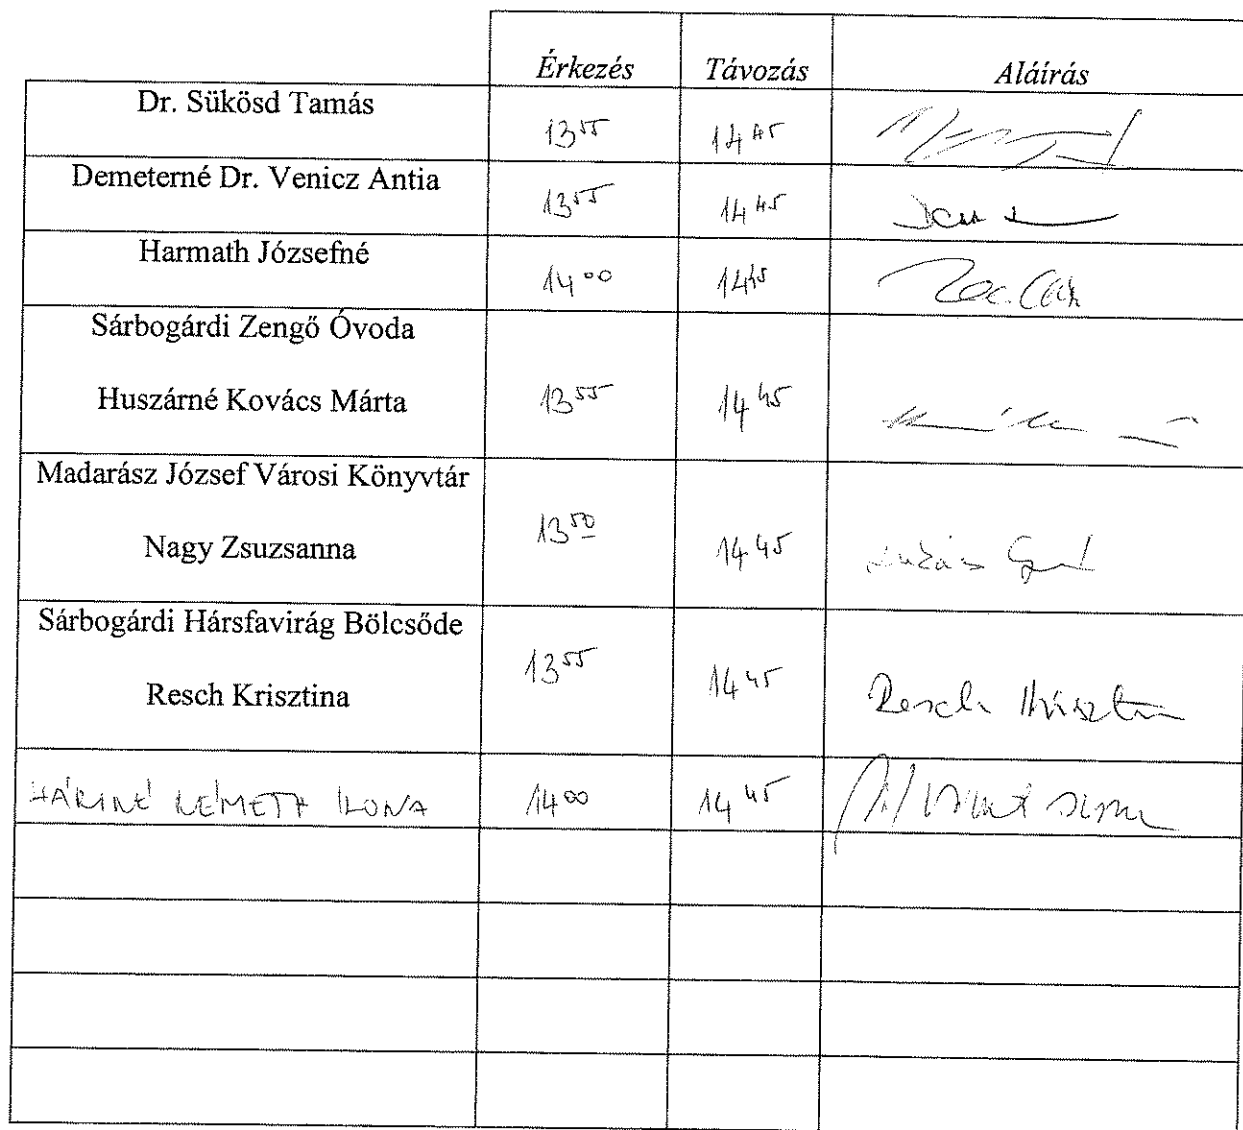 Érkezés Távozás Aláírás
Dr. Sükösd Tamás
13 55 14 45
Demeterné Dr. Venicz Antia
13 55 14 45
Harmath Józsefné
14 00 14 45
Sárbogárdi Zengő Óvoda
Huszárné Kovács Márta 13 55 14 45
Madarász József Városi Könyvtár
13 50
Nagy Zsuzsanna 14 45
Sárbogárdi Hársfavirág Bölcsőde
13 55
Resch Krisztina 14 45 Resch Krisztina
HÁRINÉ NÉMETH ILONA 14 00 14 45